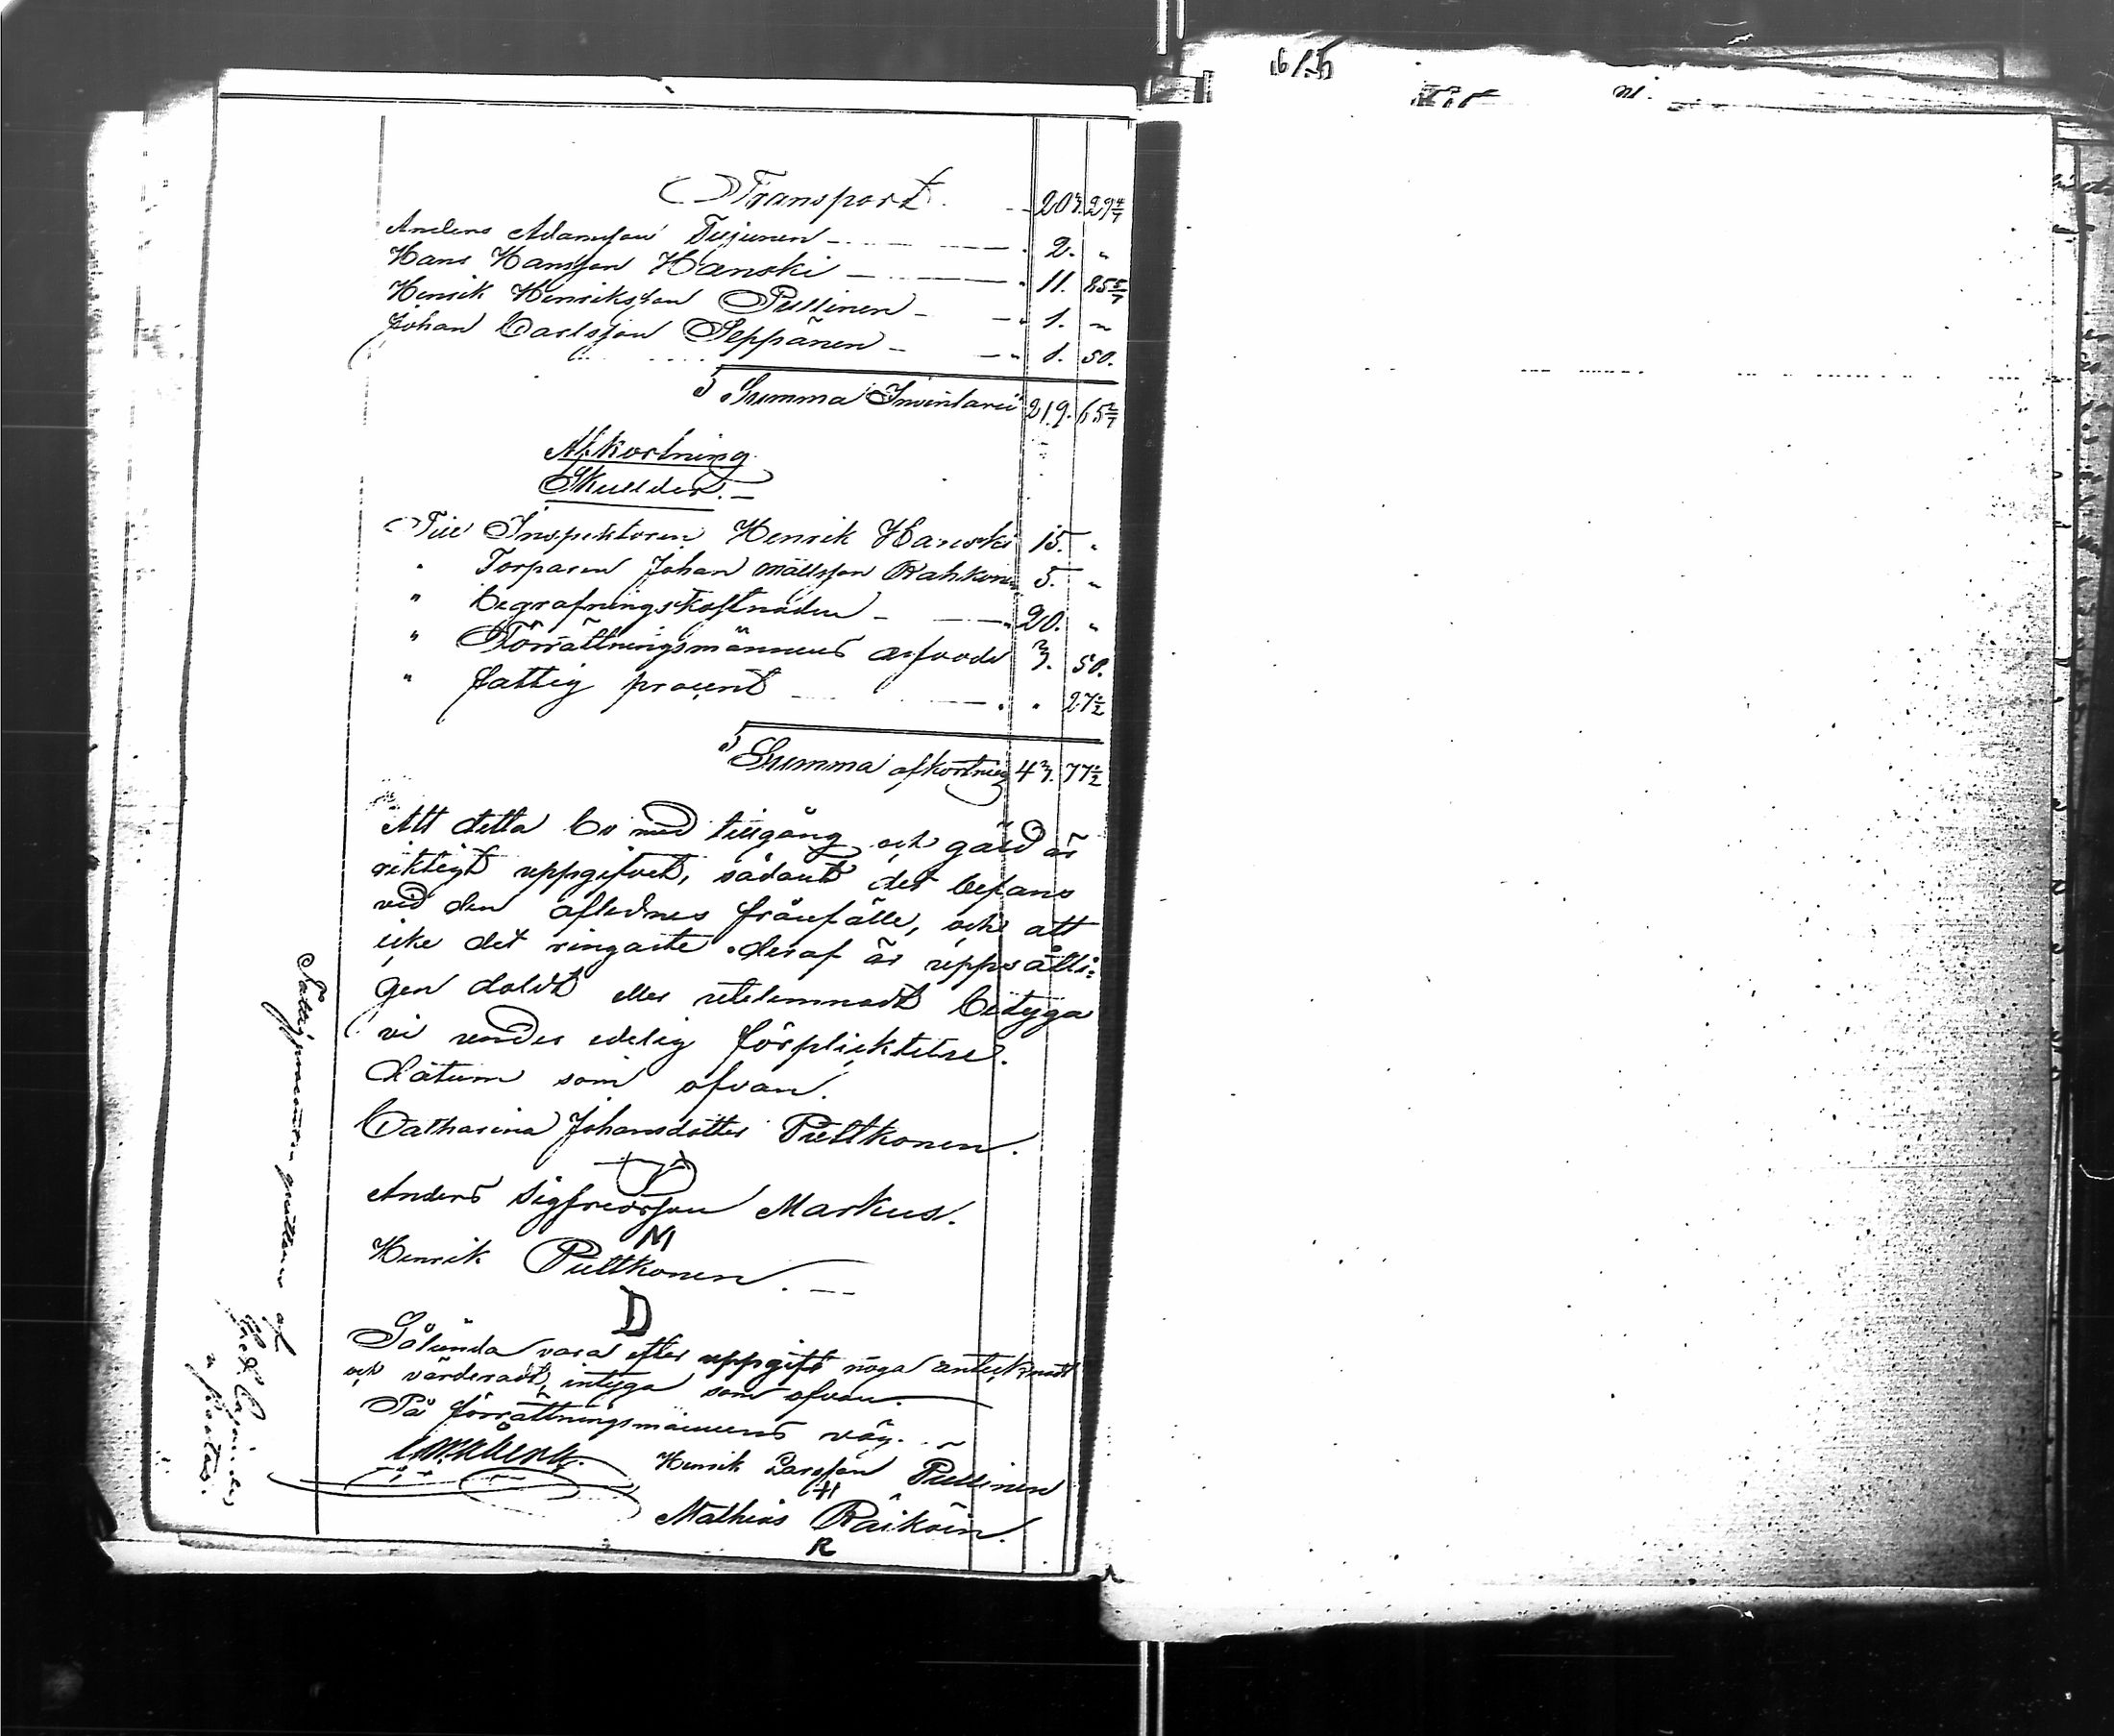 Transport. 203. 29 4/7
Anders Adamsson Tujunen 2. "
Hans Hansson Hanski 11. 85 5/7
Henrik Henriksson Pullinen 1. "
Johan Carlsson Seppänen 1. 50.
Summa Inventarii 219. 65 2/7
Afkortning
Skullder.
Till Inspektoren Henrik Hanski 15. "
" Torparen Johan Mållsson Rahkonen 5. "
" begrafningskostnaden 20. "
" Förrättningsmännens arfvode 3. 50.
" fattig procent " 27 1/2
Summa afkortning 43. 77 1/2
Att detta bo med tillgång och gäld är
riktigt uppgifvet, sådant det befans
vid den aflednes frånfälle, och att
icke det ringaste deraf är uppsåtli=
gen doldt eller utelemnadt betyga
vi under edelig förpliktelse.
Datum som ofvan.
Catharina Johansdotter Pulkkonen.
Anders Sigfredsson Markus.
M
Henrik Pulkkonen.
D
Sålunda vara efter uppgift noga antecknadt
och värderadt, intyga som ofvan.
På förrättningsmännens väg.
Henrik Larsson Pullinen
H
Mathias Räiköin.
R
Fattigprocenten quitteras af